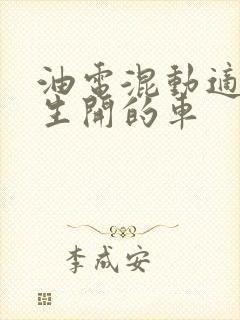 油電混動適
生開的車
李成安